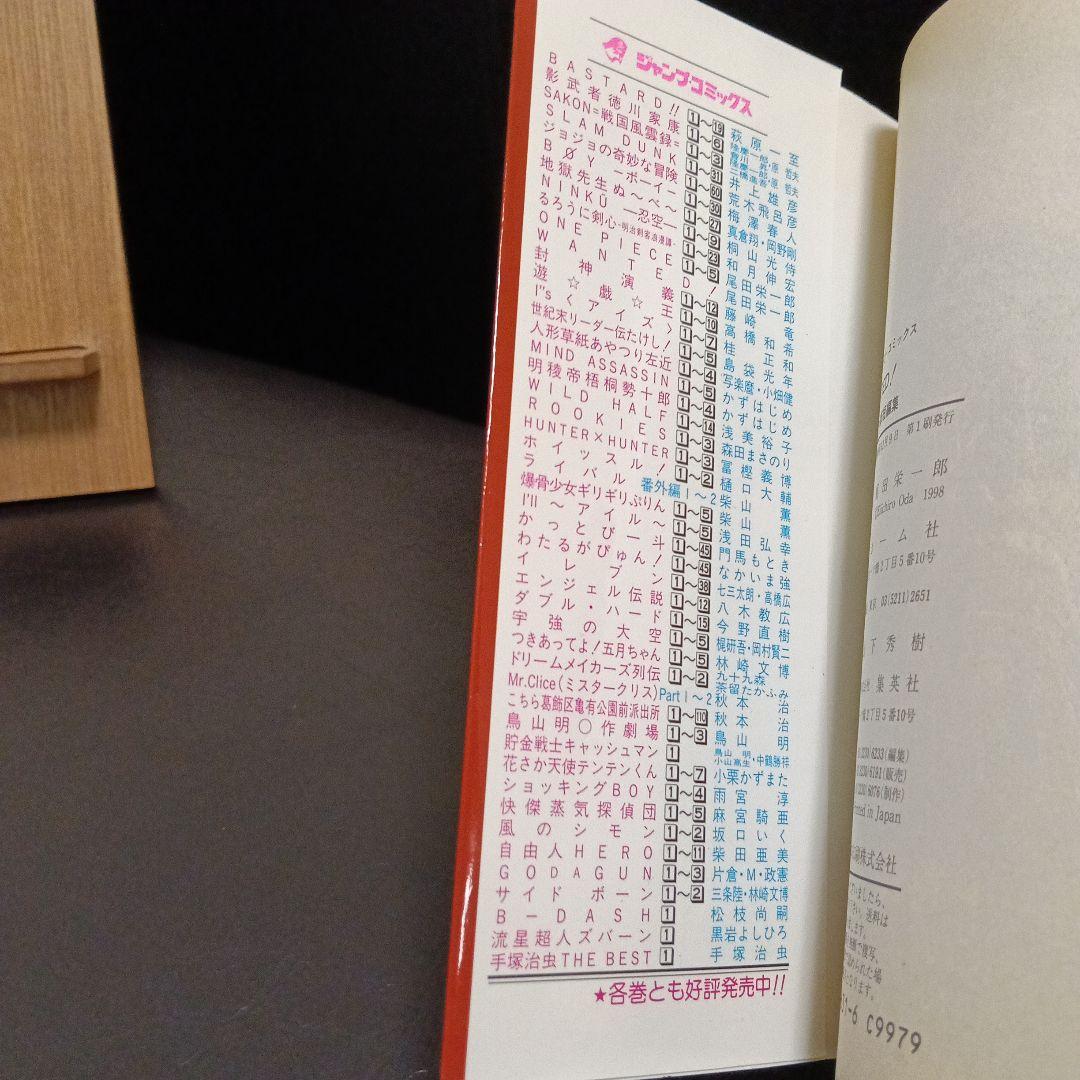 ジャンプ・コミックス
BASTARD!! 1〜19 萩原一至
影武者徳川家康 1〜6
SAKON=戦国風雲録= 1〜3
SLAM DUNK 1〜31 井上雄彦
ジョジョの奇妙な冒険 1〜60 荒木飛呂彦
BØY―ボーイ― 1〜30 梅澤春人
地獄先生ぬ〜べ〜 1〜27 真倉翔・岡野剛
NINKŪ―忍空― 1〜9 桐山光侍
るろうに剣心-明治剣客浪漫譚- 1〜23 和月伸宏
ONE PIECE 1〜5 尾田栄一郎
WANTED! 尾田栄一郎
封神演義 1〜12 藤崎竜
遊☆戯☆王 1〜10 高橋和希
I"s〈アイズ〉 1〜7 桂正和
世紀末リーダー伝たけし! 1〜5 島袋光年
人形草紙あやつり左近 1〜4 写楽麿・小畑健
MIND ASSASSIN 1〜5 かずはじめ
明稜帝梧桐勢十郎 1〜4 かずはじめ
WILD HALF 1〜14 浅美裕子
ROOKIES 1〜3 森田まさのり
HUNTER×HUNTER 1〜3 冨樫義博
ホイッスル! 1〜2 樋口大輔
ライバル 番外編1〜2 柴山薫
爆骨少女ギリギリぷりん 1〜5 柴山薫
I'll〜アイル〜 1〜5 浅田弘幸
かっとび一斗 1〜45 門馬もとき
わたるがぴゅん! 1〜45 なかいま強
イレブン 1〜38 七三太朗・高橋広
エンジェル伝説 1〜12 八木教広
ダブル・ハード 1〜15 今野直樹
宇強の大空 1〜5 梶研吾・岡村賢二
つきあってよ!五月ちゃん 1〜5 林崎文博
ドリームメイカーズ列伝 1〜2 九十九森 茶留たかふみ
Mr.Clice(ミスタークリス) Part1〜2 秋本治
こちら葛飾区亀有公園前派出所 1〜110 秋本治
鳥山明○作劇場 1〜3 鳥山明
貯金戦士キャッシュマン 1 鳥山明・中鶴勝祥 小山高生
花さか天使テンテンくん 1〜7 小栗かずまた
ショッキングBOY 1〜4 雨宮淳
快傑蒸気探偵団 1〜5 麻宮騎亜
風のシモン 1〜2 坂口いく
自由人HERO 1〜11 柴田亜美
GODAGUN 1〜3 片倉・M・政憲
サイドボーン 1〜2 三条陸・林崎文博
B-DASH 1 松枝尚嗣
流星超人ズバーン 1 黒岩よしひろ
手塚治虫THE BEST 1 手塚治虫
★各巻とも好評発売中!!
ーコミックス
D!
編集
9日 第1刷発行
田栄一郎
Eiichiro Oda 1998
ーム社
橋2丁目5番10号
東京 03(5211)2651
下秀樹
集英社
橋2丁目5番10号
(3230)6233(編集)
(3230)6191(販売)
(3230)6076(制作)
Printed in Japan
刷株式会社
いましたら、
さい。送料は
ます。
無断で複写、
認められた場
なります。
31-6 C9979